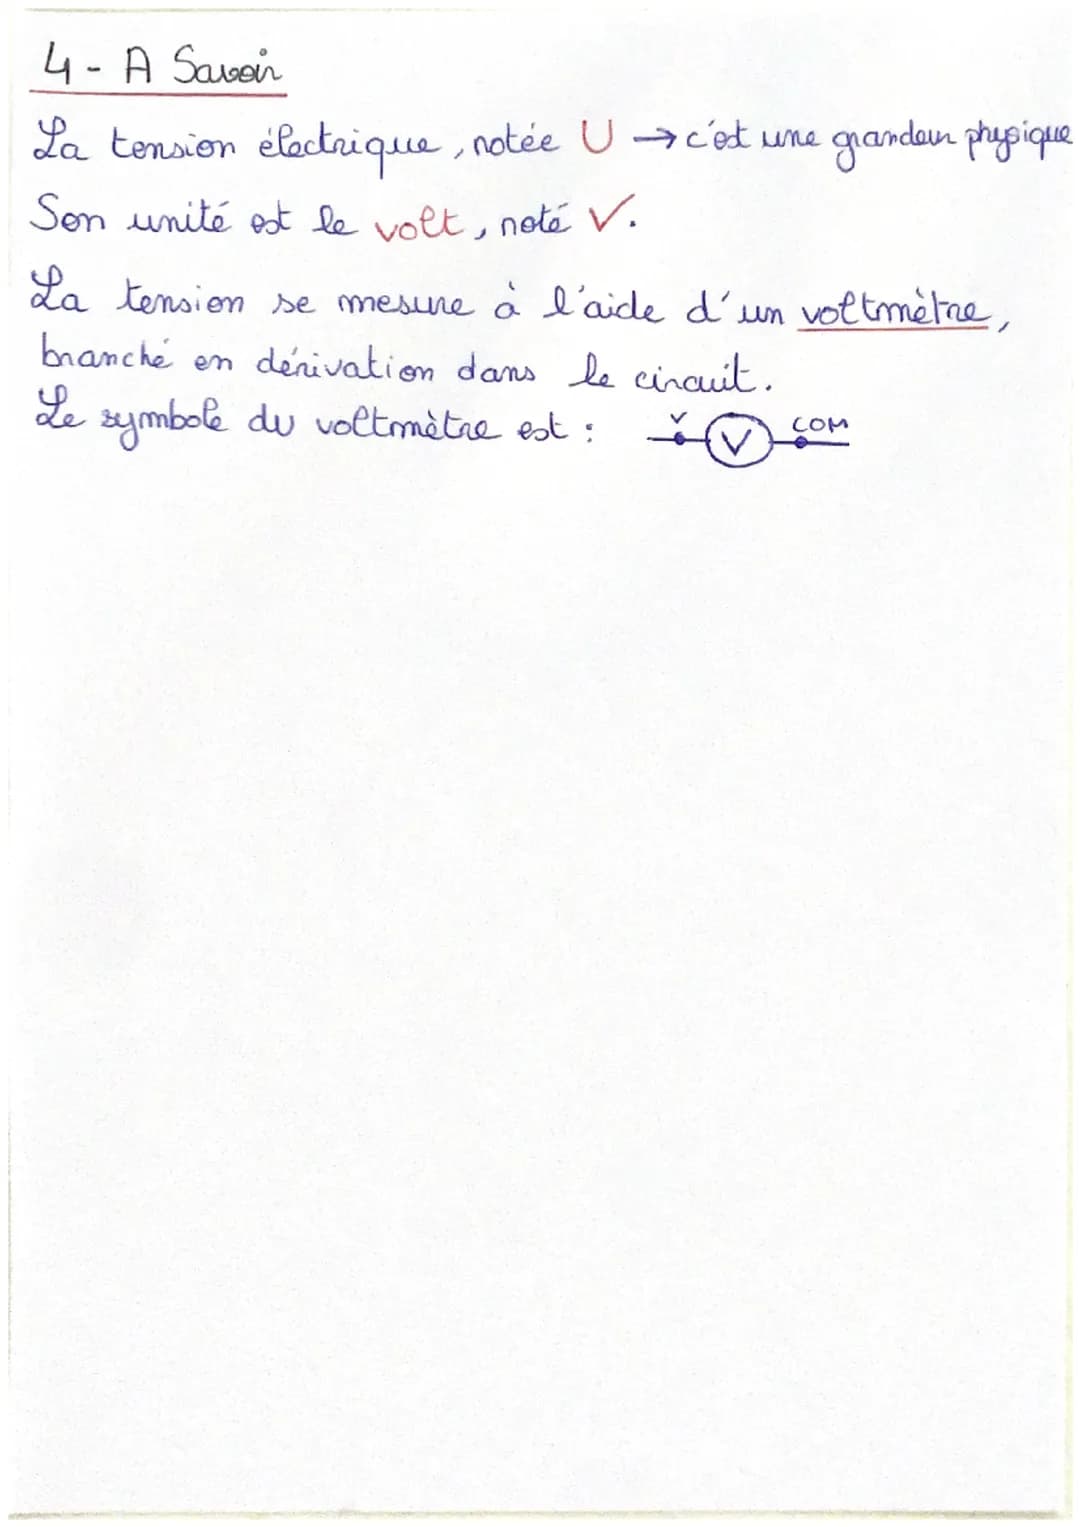 4 - A Savoir
La tension électrique, notée U → c'est une grandeur physique
Son unité est le volt, noté V.
La tension se mesure à l'aide d'un voltmètre,
branché en dérivation dans le circuit.
Le symbole du voltmètre est : V V COM